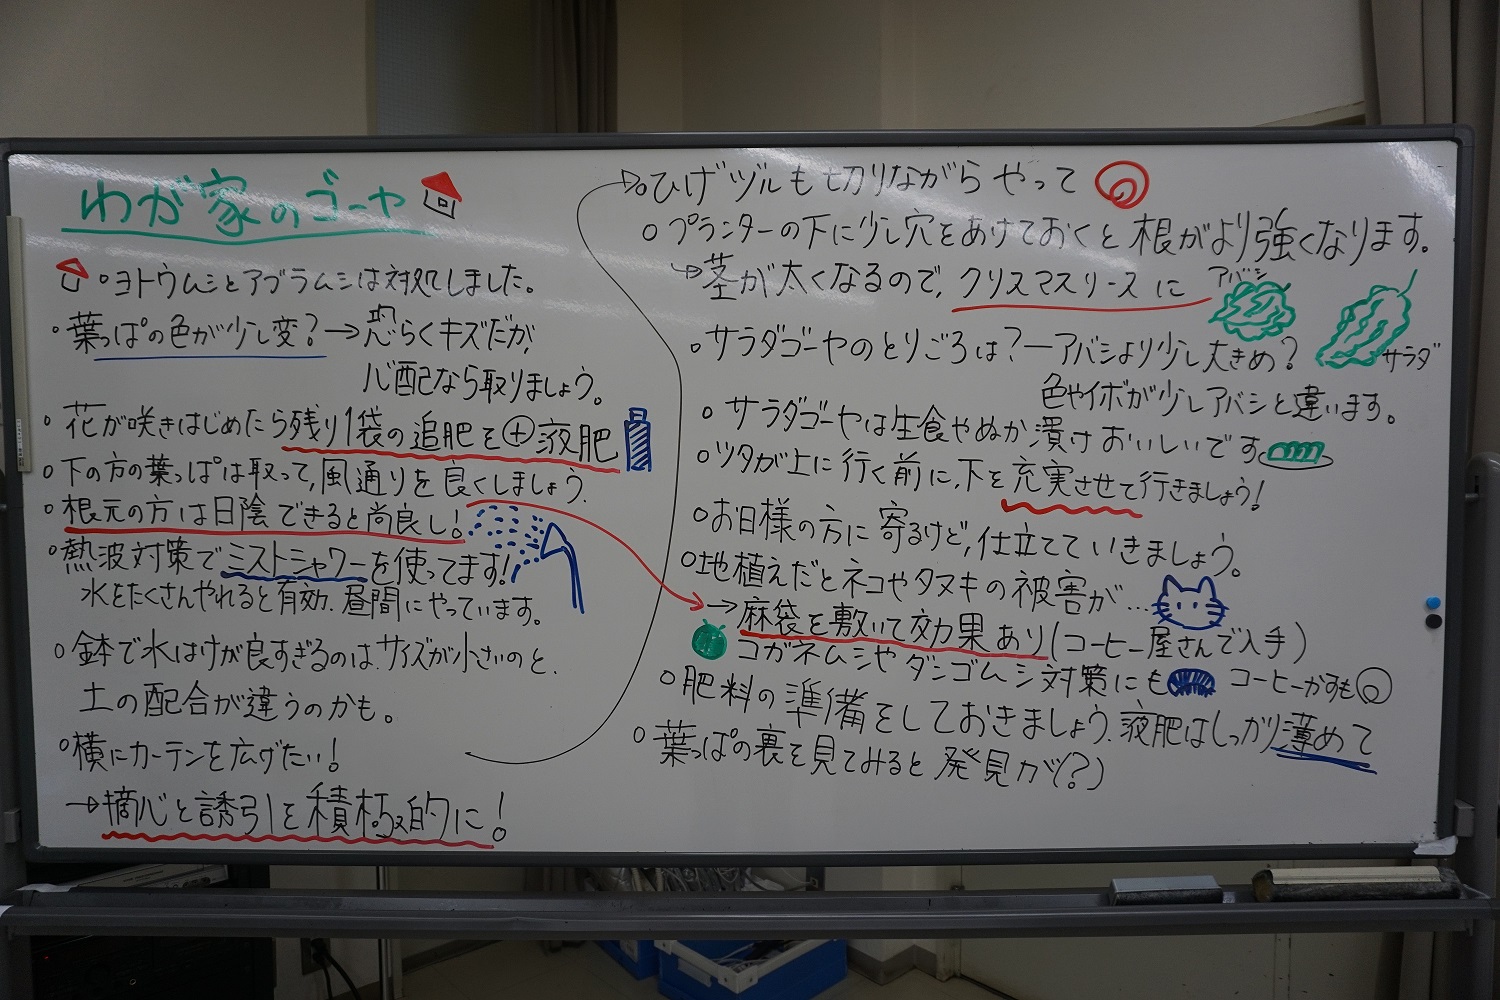 わが家のゴーヤ
○ヨトウムシとアブラムシは対処しました。
○葉っぱの色が少し変?→恐らくキズだが、
心配なら取りましょう。
○花が咲きはじめたら残り1袋の追肥を⊕液肥
○下の方の葉っぱは取って、風通りを良くしましょう。
○根元の方は日陰できると尚良し!
○熱波対策でミストシャワーを使ってます!
水をたくさんやれると有効。昼間にやっています。
○鉢で水はけが良すぎるのは、サイズが小さいのと、
土の配合が違うのかも。
○横にカーテンを広げたい!
→摘心と誘引を積極的に!
○ひげヅルも切りながらやって
○プランターの下に少し穴をあけておくと根がより強くなります。
↪茎が太くなるので、クリスマスリースに
アバシ
○サラダゴーヤのとりごろは?―アバシより少し大きめ?
サラダ
色やイボが少しアバシと違います。
○サラダゴーヤは生食やぬか漬けおいしいです
○ツタが上に行く前に、下を充実させて行きましょう!
○お日様の方に寄るけど、仕立てていきましょう。
○地植えだとネコやタヌキの被害が…
→麻袋を敷いて効果あり(コーヒー屋さんで入手)
コガネムシやダンゴムシ対策にも コーヒーかすも◎
○肥料の準備をしておきましょう。液肥はしっかり薄めて
○葉っぱの裏を見てみると発見が(?)